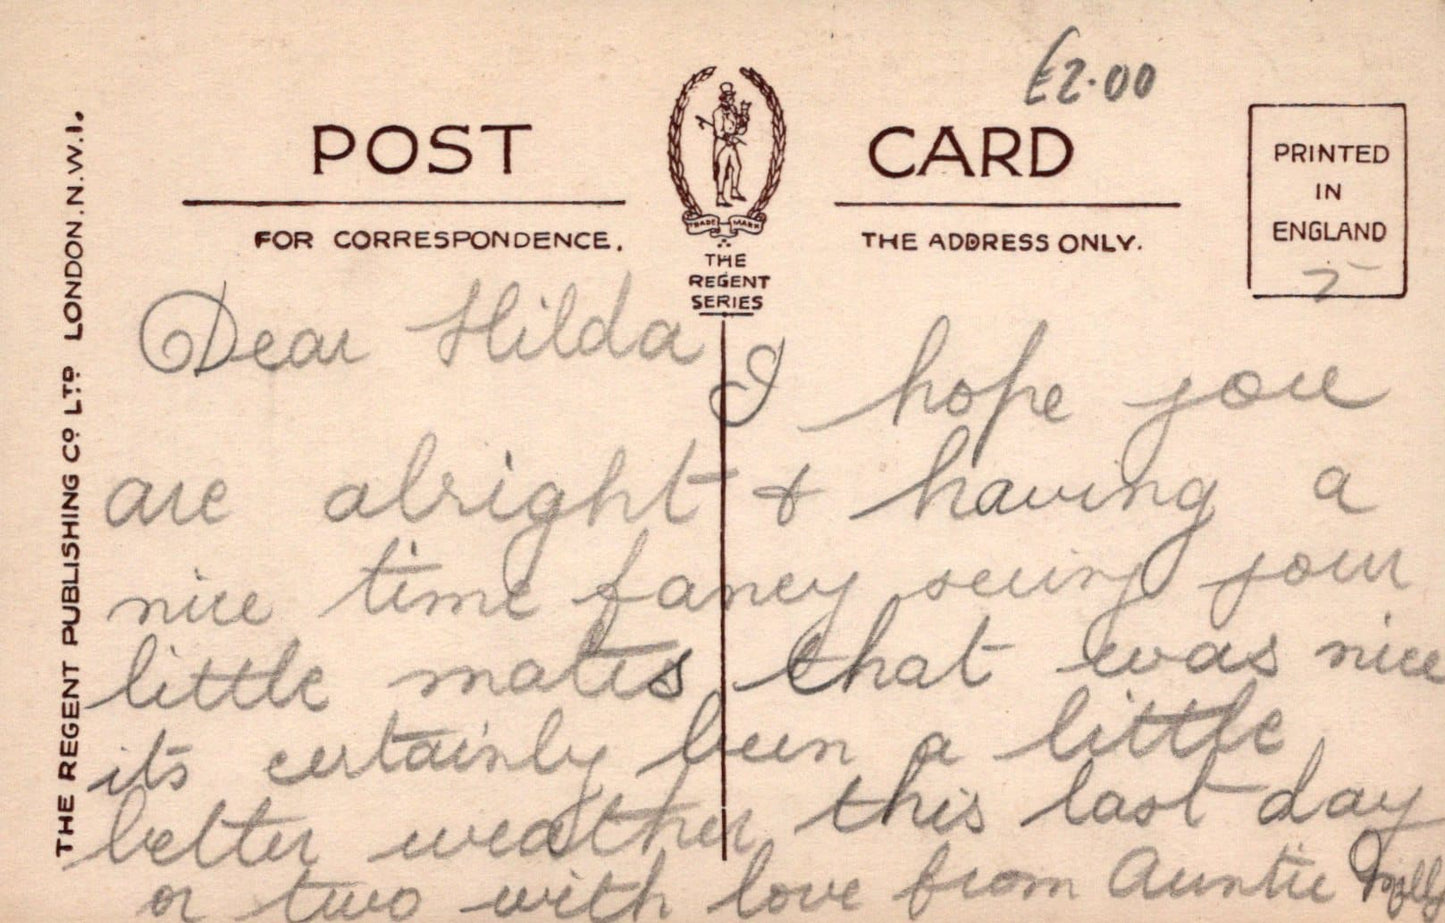 £2.00
POST CARD
FOR CORRESPONDENCE.
THE ADDRESS ONLY.
TRADE MARK
THE
REGENT
SERIES
PRINTED
IN
ENGLAND
THE REGENT PUBLISHING Co LTD LONDON. N.W.1.
Dear Hilda I hope you
are alright & having a
nice time fancy seeing your
little mates that was nice
its certainly been a little
better weather this last day
or two with love from Auntie